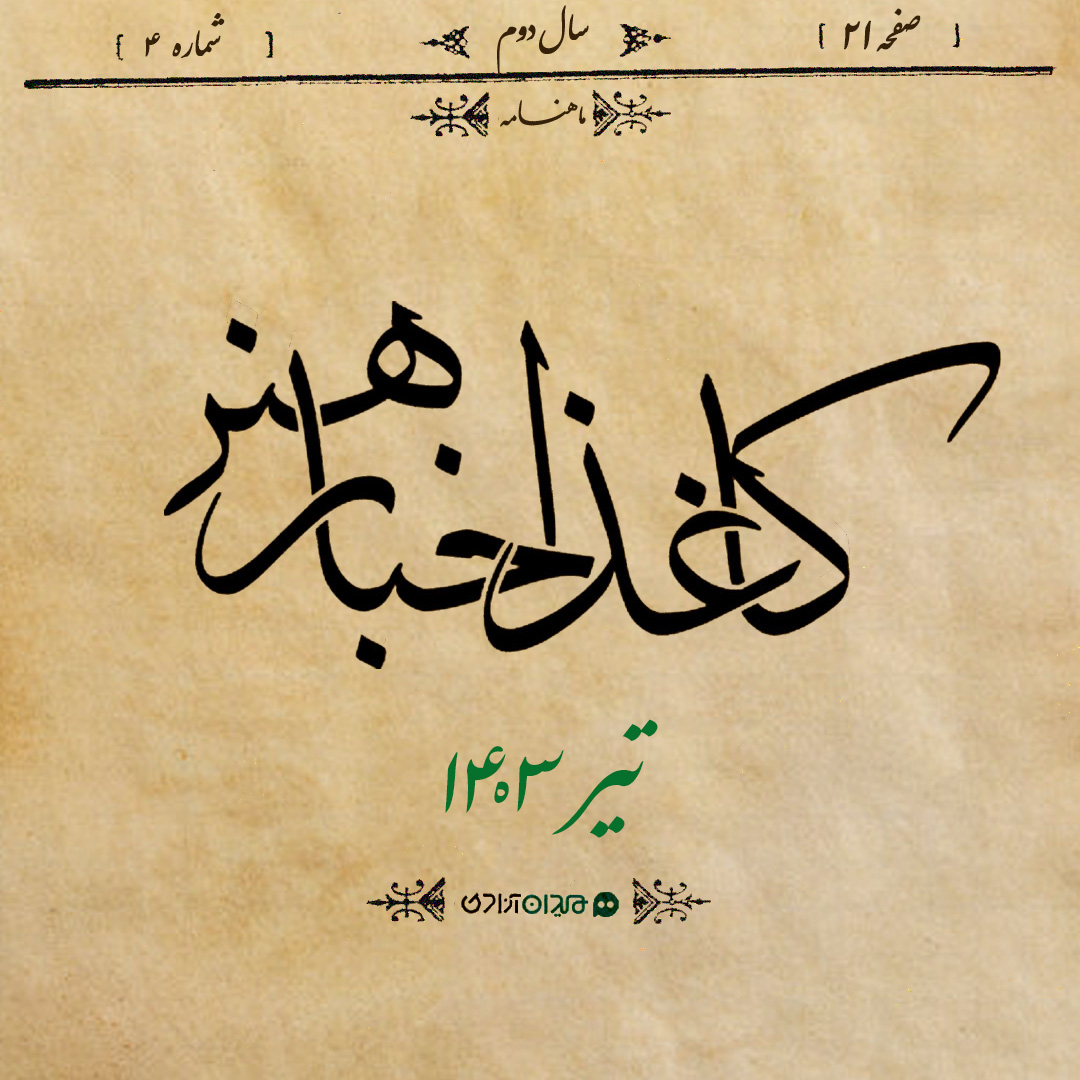 [ صفحه ۲۱ ] سال دوم [ شماره ۴ ]
ماهنامه
کاغذ اخبار هنر
تیر ۱۴۰۳
میدان آزادی